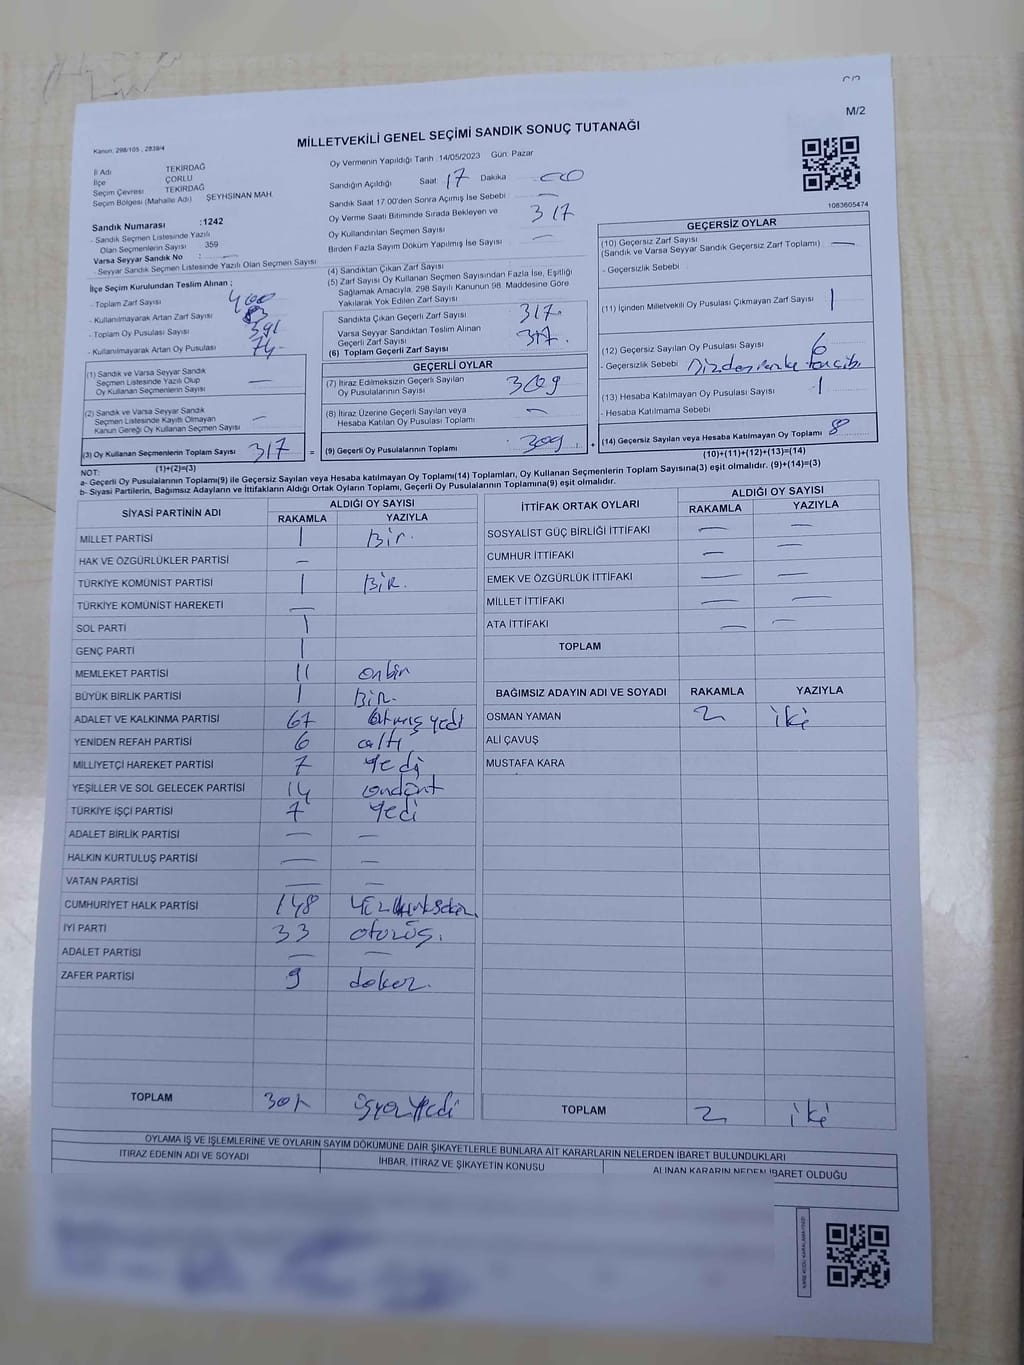 M/2
MİLLETVEKİLİ GENEL SEÇİMİ SANDIK SONUÇ TUTANAĞI
Kanun; 298/105 , 2839/4
Oy Vermenin Yapıldığı Tarih :14/05/2023 Gün: Pazar
İl Adı TEKİRDAĞ
İlçe ÇORLU
Seçim Çevresi TEKİRDAĞ
Seçim Bölgesi (Mahalle Adı) ŞEYHSİNAN MAH
Sandığın Açıldığı Saat: 17 Dakika 00
Sandık Saat 17:00'den Sonra Açılmış İse Sebebi —
Oy Verme Saati Bitiminde Sırada Bekleyen ve
Oy Kullandırılan Seçmen Sayısı 317
Birden Fazla Sayım Döküm Yapılmış İse Sayısı —
1083605474
Sandık Numarası : 1242
- Sandık Seçmen Listesinde Yazılı
Olan Seçmenlerin Sayısı 359
Varsa Seyyar Sandık No :
- Seyyar Sandık Seçmen Listesinde Yazılı Olan Seçmen Sayısı
İlçe Seçim Kurulundan Teslim Alınan ;
- Toplam Zarf Sayısı 400
- Kullanılmayarak Artan Zarf Sayısı 83
- Toplam Oy Pusulası Sayısı 391
- Kullanılmayarak Artan Oy Pusulası 74-
(1) Sandık ve Varsa Seyyar Sandık
Seçmen Listesinde Yazılı Olup
Oy Kullanan Seçmenlerin Sayısı —
(2) Sandık ve Varsa Seyyar Sandık
Seçmen Listesinde Kayıtlı Olmayan
Kanun Gereği Oy Kullanan Seçmen Sayısı —
(3) Oy Kullanan Seçmenlerin Toplam Sayısı 317
(1)+(2)=(3)
(4) Sandıktan Çıkan Zarf Sayısı
(5) Zarf Sayısı Oy Kullanan Seçmen Sayısından Fazla İse, Eşitliği
Sağlamak Amacıyla, 298 Sayılı Kanunun 98. Maddesine Göre
Yakılarak Yok Edilen Zarf Sayısı
Sandıkta Çıkan Geçerli Zarf Sayısı 317.
Varsa Seyyar Sandıktan Teslim Alınan
Geçerli Zarf Sayısı
(6) Toplam Geçerli Zarf Sayısı 317.
GEÇERLİ OYLAR
(7) İtiraz Edilmeksizin Geçerli Sayılan
Oy Pusulalarının Sayısı 309
(8) İtiraz Üzerine Geçerli Sayılan veya
Hesaba Katılan Oy Pusulası Toplamı —
= (9) Geçerli Oy Pusulalarının Toplamı 309.
GEÇERSİZ OYLAR
(10) Geçersiz Zarf Sayısı
(Sandık ve Varsa Seyyar Sandık Geçersiz Zarf Toplamı) —
- Geçersizlik Sebebi
(11) İçinden Milletvekili Oy Pusulası Çıkmayan Zarf Sayısı 1
(12) Geçersiz Sayılan Oy Pusulası Sayısı 6
- Geçersizlik Sebebi
(13) Hesaba Katılmayan Oy Pusulası Sayısı 1
- Hesaba Katılmama Sebebi
+ (14) Geçersiz Sayılan veya Hesaba Katılmayan Oy Toplamı 8
(10)+(11)+(12)+(13)=(14)
NOT:
a- Geçerli Oy Pusulalarının Toplamı(9) ile Geçersiz Sayılan veya Hesaba katılmayan Oy Toplamı(14) Toplamları, Oy Kullanan Seçmenlerin Toplam Sayısına(3) eşit olmalıdır. (9)+(14)=(3)
b- Siyasi Partilerin, Bağımsız Adayların ve İttifakların Aldığı Ortak Oyların Toplamı, Geçerli Oy Pusulalarının Toplamına(9) eşit olmalıdır.
SİYASİ PARTİNİN ADI ALDIĞI OY SAYISI
RAKAMLA YAZIYLA
MİLLET PARTİSİ 1 Bir.
HAK VE ÖZGÜRLÜKLER PARTİSİ —
TÜRKİYE KOMÜNİST PARTİSİ 1 BİR.
TÜRKİYE KOMÜNİST HAREKETİ —
SOL PARTİ 1
GENÇ PARTİ 1
MEMLEKET PARTİSİ 11 onbir
BÜYÜK BİRLİK PARTİSİ 1 BİR.
ADALET VE KALKINMA PARTİSİ 67 Altmış yedi
YENİDEN REFAH PARTİSİ 6 altı
MİLLİYETÇİ HAREKET PARTİSİ 7 Yedi
YEŞİLLER VE SOL GELECEK PARTİSİ 14 ondört
TÜRKİYE İŞÇİ PARTİSİ 7 Yedi
ADALET BİRLİK PARTİSİ — —
HALKIN KURTULUŞ PARTİSİ — —
VATAN PARTİSİ — —
CUMHURİYET HALK PARTİSİ 148 Yüzkırksekiz.
İYİ PARTİ 33 otuzüç.
ADALET PARTİSİ — —
ZAFER PARTİSİ 9 dokuz.
TOPLAM 307 üçyüzyedi
İTTİFAK ORTAK OYLARI ALDIĞI OY SAYISI
RAKAMLA YAZIYLA
SOSYALİST GÜÇ BİRLİĞİ İTTİFAKI — —
CUMHUR İTTİFAKI — —
EMEK VE ÖZGÜRLÜK İTTİFAKI — —
MİLLET İTTİFAKI — —
ATA İTTİFAKI — —
TOPLAM
BAĞIMSIZ ADAYIN ADI VE SOYADI RAKAMLA YAZIYLA
OSMAN YAMAN 2 iki
ALİ ÇAVUŞ
MUSTAFA KARA
TOPLAM 2 iki
OYLAMA İŞ VE İŞLEMLERİNE VE OYLARIN SAYIM DÖKÜMÜNE DAİR ŞİKAYETLERLE BUNLARA AİT KARARLARIN NELERDEN İBARET BULUNDUKLARI
İTİRAZ EDENİN ADI VE SOYADI İHBAR, İTİRAZ VE ŞİKAYETİN KONUSU ALINAN KARARIN NEDEN İBARET OLDUĞU